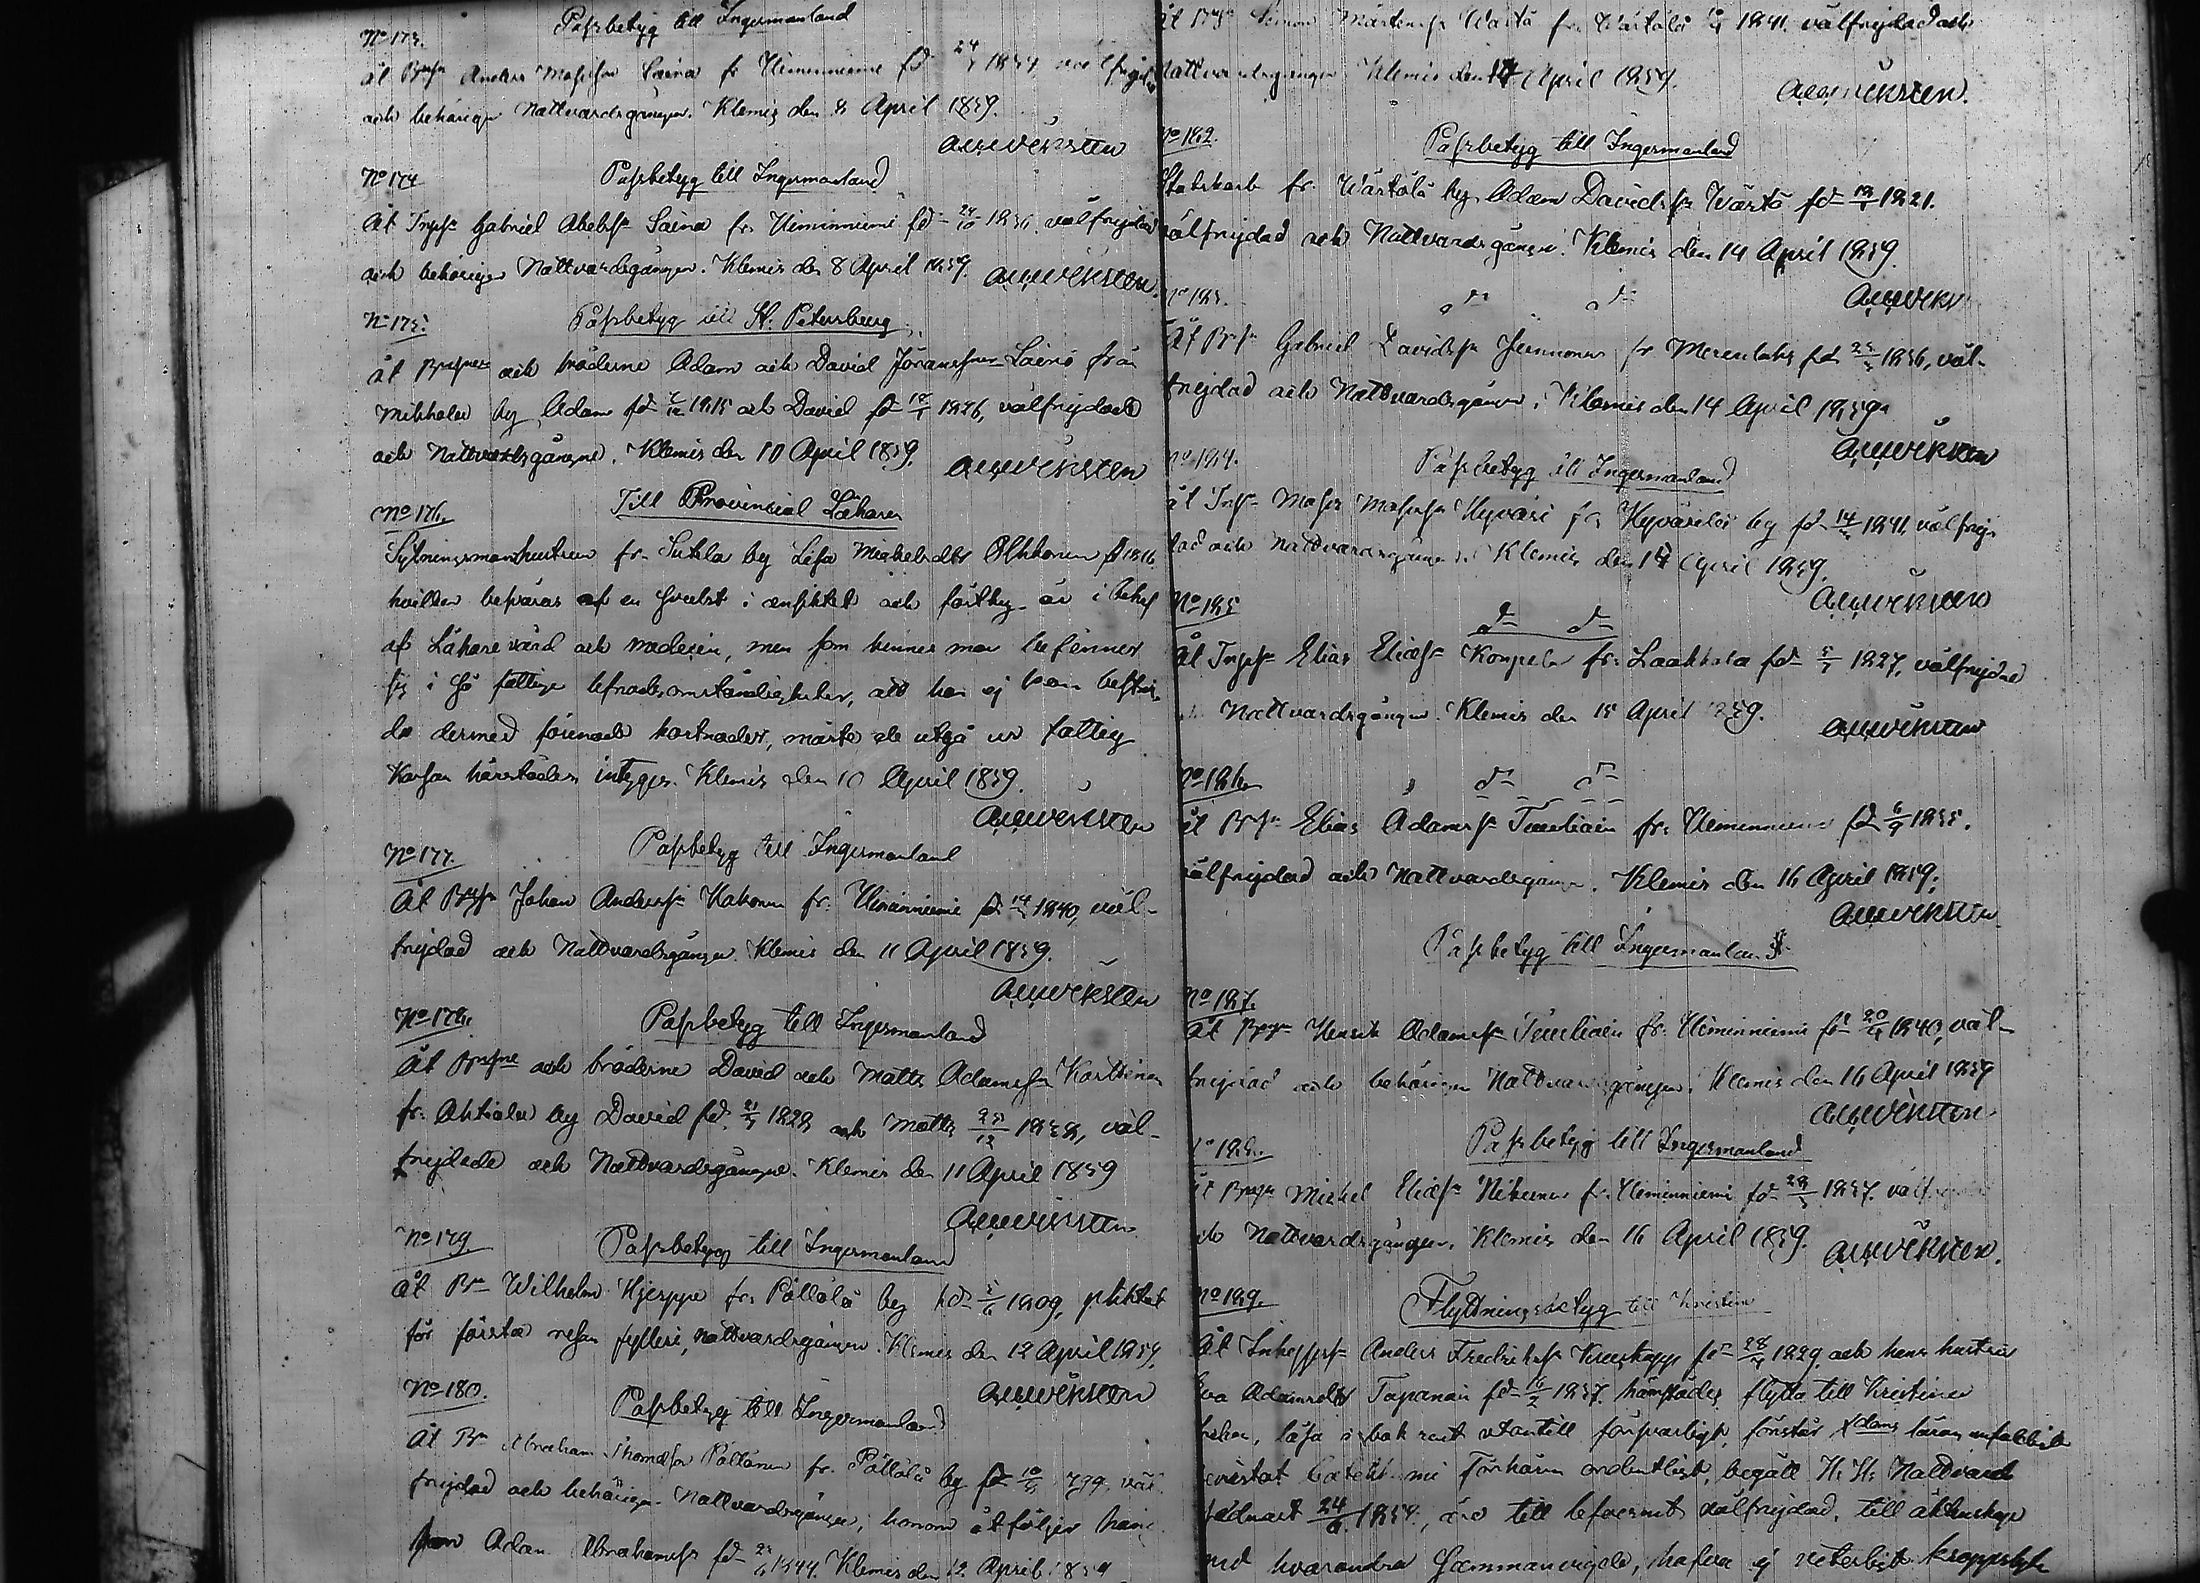 No 173. Passbetyg till Ingermanland
åt Bssn Anders Mosisson Laina fr. Himinniemi fd 24/ 185 välfrejd
och behörigen Nattvardsgången. Klemis den 8 April 1859.
Aug. Weksten
No 174 Passbetyg till Ingermanland
Åt Inhs Gabriel Abelss Laina fr. Himinniemi fd 24/10 1836 välfrejdad
och behörigen Nattvardsgången. Klemis den 8 April 1859. Aug. Weksten.
No 175. Passbetyg till St. Petersburg
åt och bröderne Adam och David Laina från
by Adam fd 1815 och David fd 1826, välfrejdade
och Nattvardsgångne. Klemis den 10 April 1859. Aug. Weksten
No 176. Till Provincial Läkaren
Sytningsmanshustrun fr. Sukela by Lisa Michelsdtr Olkkonen fd 1816,
hvilken besväras af en svulst i ansiktet och förthy är i behof
af Läkarevård och medecin, men som hennes man befinner
sig i så fattiga lefnadsomständigheter, att han ej kan bestri-
da dermed förenade kostnader, måste de utgå ur fattig
Kassan härstädes, intygas. Klemis den 10 April 1859.
Aug. Weksten
No 177. Passbetyg till Ingermanland
Åt Johan Anderss Hakonen fr. Himinniemi fd 14/ 1840, väl-
frejdad och Nattvardsgången. Klemis den 11 April 1859.
Aug. Weksten
No 178. Passbetyg till Ingermanland
Åt och bröderne David och Matts Adamssn Karttinen
fr. Ahtiala by David fd. 21/ 1828 och Matts 25/12 1838, väl-
frejdade och Nattvardsgångne. Klemis den 11 April 1859
Aug. Weksten
No 179. Passbetyg till Ingermanland
Åt Bn Wilhelm Hjerppe fr. Pöllölä by fd 1809, pliktat
för första resan fylleri, nattvardsgången. Klemis den 12 April 1859.
Aug. Weksten
No 180. Passbetyg till Ingermanland
Åt Bn Abraham Thomasson Pöllänen fr. Pöllölä by fd 10/8 799, väl-
frejdad och behörigen Nattvardsgången; honom åtföljer hans
son Adam Abrahamss fd 1844. Klemis den 12 April 1859
åt Simon Mårtenss Wärtö fr. Wärtölä 1841. välfrejdad och
Nattvardsgången Klemis den 14 April 1859.
Aug. Weksten.
No 182. Passbetyg till Ingermanland
fr. Wärtölä by Adam Davidss Wärtö fd 1821.
välfrejdad och Nattvardsgången. Klemis den 14 April 1859.
Aug. Weks
No 183. do do
Åt Gabriel Davidss fr. fd 25/ 1836, väl-
frejdad och Nattvardsgången. Klemis den 14 April 1859.
Aug. Weksten
No 184. Passbetyg till Ingermanland
åt Inhs Moses Mosess Hyväri fr. Hyvärilä by fd 14/ 1841, välfrej-
dad och Nattvardsgången Klemis den 14 April 1859.
Aug. Weksten
No 185 do do
Åt Elias Eliass fr. Laakkola fd 1827, välfrejdad
Nattvardsgången. Klemis den 15 April 1859.
Aug. Weksten
No 186 do do
åt Elias Adamss Tiurliain fr. Himinniemi fd 6/9 1835.
välfrejdad och Nattvardsgången. Klemis den 16 April 1859.
Aug. Weksten
Passbetyg till Ingermanland
No 187.
Åt Henrik Adamss Tiurliain fr. Himinniemi fd 20/ 1840, väl-
frejdad och behörigen Nattvardsgången. Klemis den 16 April 1859
Aug. Weksten.
188. Passbetyg till Ingermanland
Michel Eliass fr. Himinniemi fd 28/ 1837. välfrejdad
Nattvardsgången. Klemis den 16 April 1859. Aug. Weksten.
No 189. Flyttningsbetyg till Kristina
Åt Anders Fredrikss fd 28/ 1829 och hans hustru
Eva Adamsdtr Tapanain fd 16/2 1837. härstädes flytta till Kristina
läsa i bok rent utantill försvarligt, förstår läran
bevistat förhören ordentligt, begått H. H. Nattvard
sednast 24/ 185 , äro till lefvernet välfrejdad, till äktenskap
med hvarandra sammanvigde, hafva ej veterligt kroppslyte